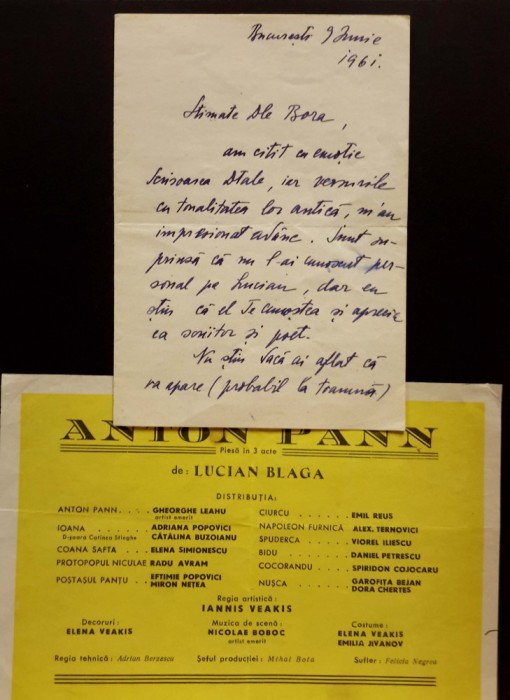 București 9 Iunie
1961.
Stimate Dle Bora,
am citit cu emoție
scrisoarea Dtale, iar versurile
cu tonalitatea lor antică, m'au
impresionat adânc. Sunt sur-
prinsă că nu l-ai cunoscut per-
sonal pe Lucian, dar eu
știu că el Te cunoștea și aprecia
ca scriitor și poet.
Nu știu dacă ai aflat că
va apare (probabil la toamnă)
ANTON PANN
Piesă în 3 acte
de: LUCIAN BLAGA
DISTRIBUȚIA:
ANTON PANN . . . . GHEORGHE LEAHU
artist emerit
IOANA . . . . . ADRIANA POPOVICI
D-șoara Catinca Stinghe CĂTĂLINA BUZOIANU
COANA SAFTA . . . ELENA SIMIONESCU
PROTOPOPUL NICULAE RADU AVRAM
POȘTAȘUL PANȚU . . EFTIMIE POPOVICI
MIRON NEȚEA
CIURCU . . . . . . EMIL REUS
NAPOLEON FURNICĂ ALEX. TERNOVICI
SPUDERCA . . . . . VIOREL ILIESCU
BIDU . . . . . . DANIEL PETRESCU
COCORANDU . . . . SPIRIDON COJOCARU
NUȘCA . . . . . . GAROFIȚA BEJAN
DORA CHERTES
Regia artistică:
IANNIS VEAKIS
Decoruri:
ELENA VEAKIS
Muzica de scenă:
NICOLAE BOBOC
artist emerit
Costume:
ELENA VEAKIS
EMILIA JIVANOV
Regia tehnică: Adrian Berzescu Șeful producției: Mihai Bota Sufler: Felicia Negrea